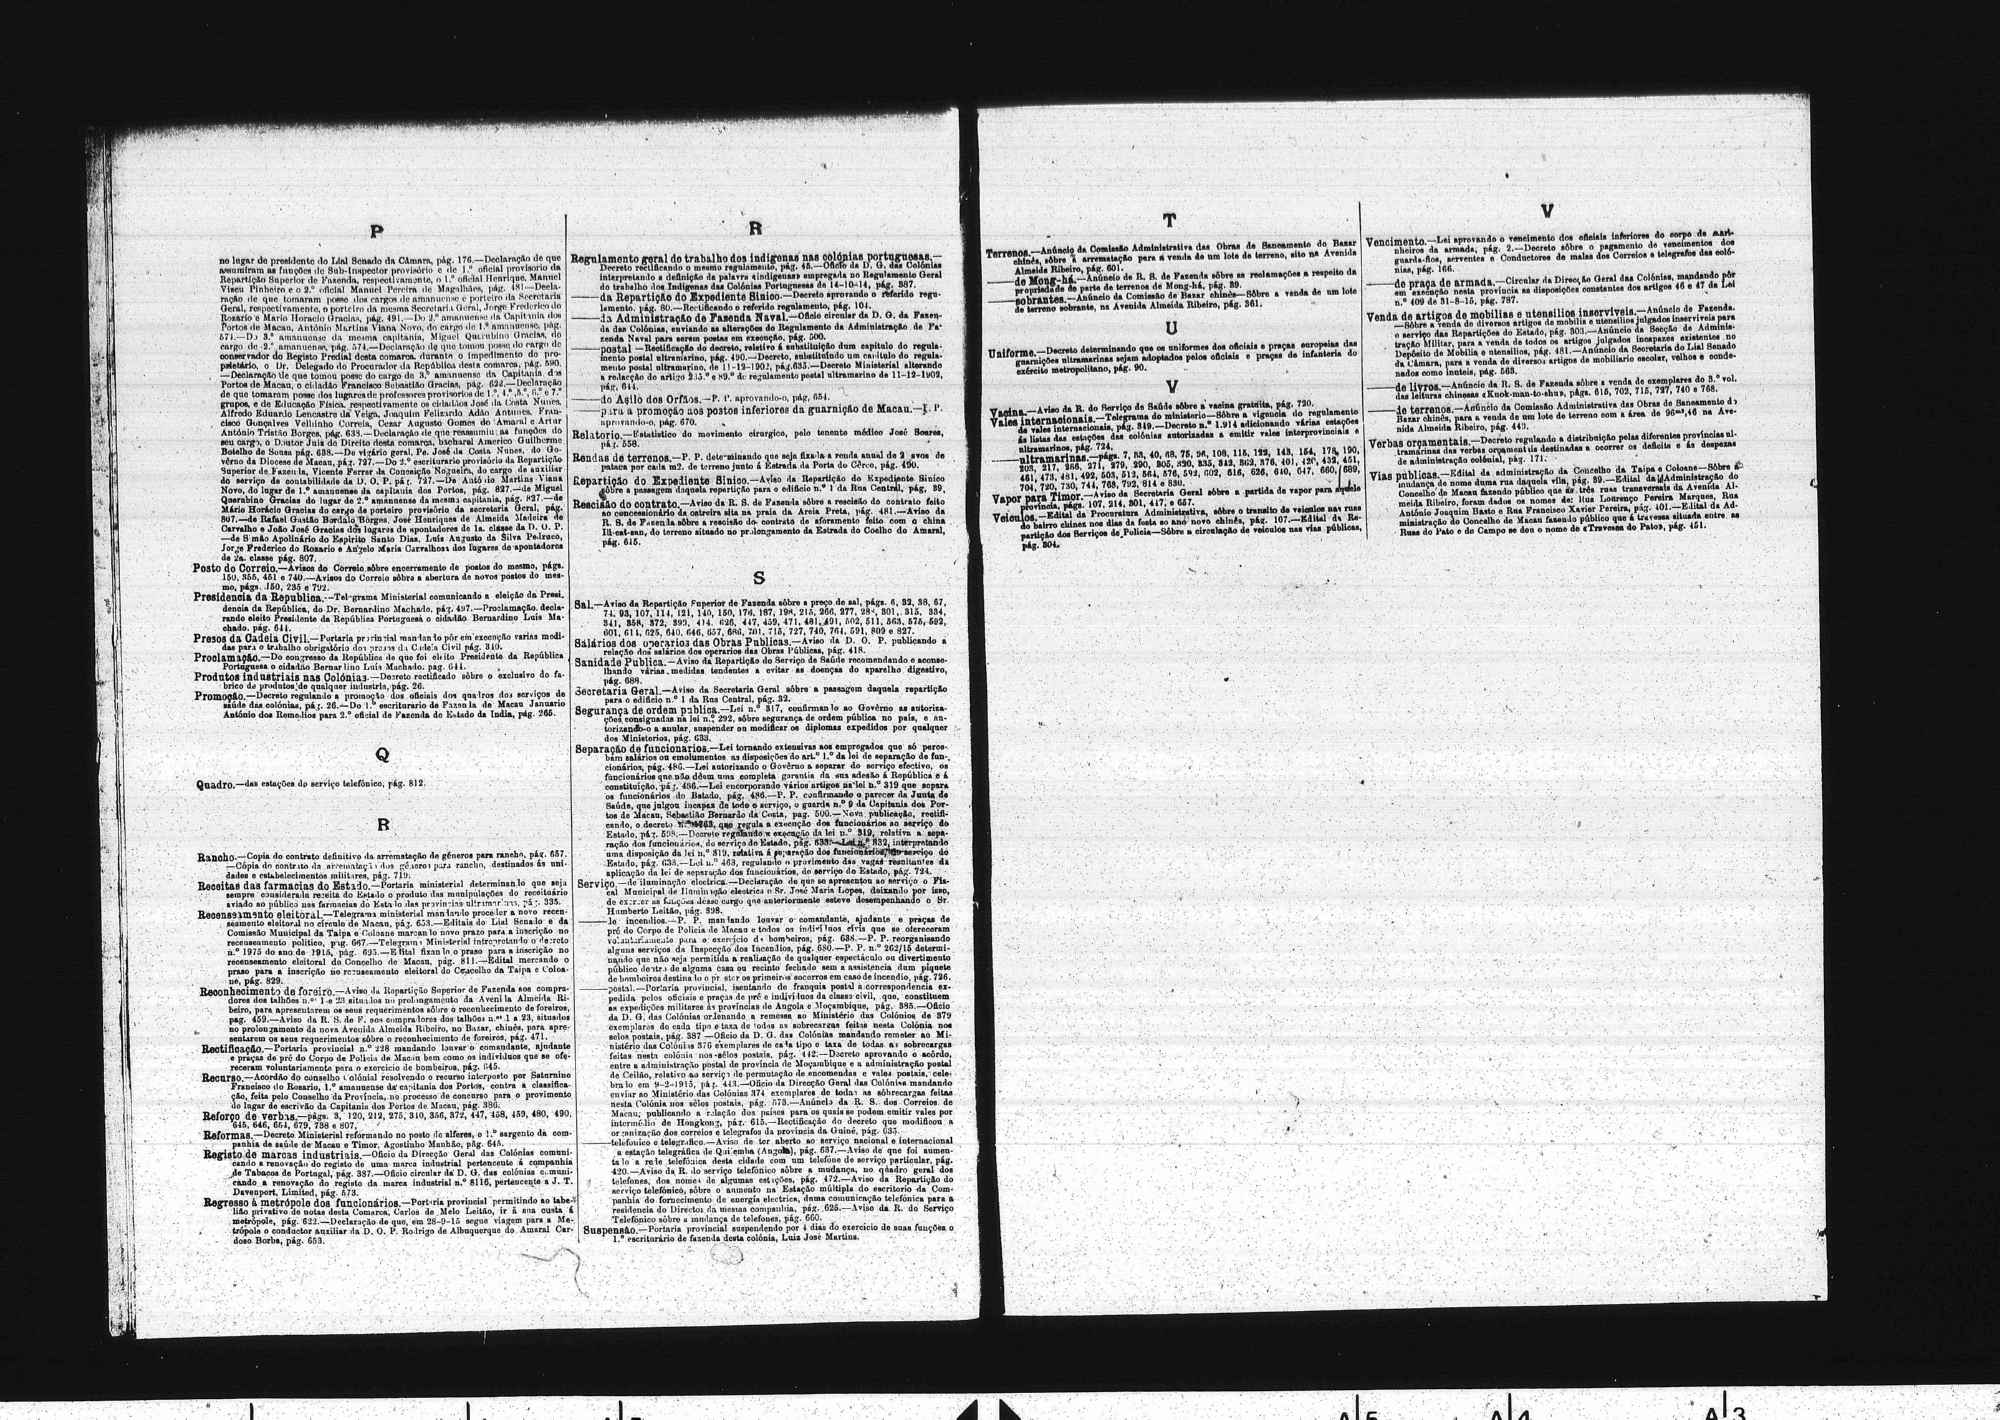 P
no lugar de presidente do Lial Senado da Câmara, pág. 176.—Declaração de que
assumiram as funções de Sub-Inspector provisório e de 1.º oficial provisorio da
Repartição Superior de Fazenda, respectivamente, o 1.º oficial Henrique, Manuel
Viseu Pinheiro e o 2.º oficial Manuel Pereira de Magalhães, pág. 481—Decla-
ração de que tomaram posse dos cargos de amanuense e porteiro da Secretaria
Geral, respectivamente, o porteiro da mesma Secretaria Geral, Jorge Frederico do
Rosário e Mario Horacio Gracias, pág. 491.—Do 2.º amanuense da Capitania dos
Portos de Macau, António Martins Viana Novo, do cargo de 1.º amanuense, pág.
571.—Do 3.º amanuense da mesma capitania, Miguel Querubino Gracias, do
cargo de 2.º amanuense, pág. 571.—Declaração de que tomou posse do cargo de
conservador do Registo Predial desta comarca, durante o impedimento do pro-
prietário, o Dr. Delegado do Procurador da República desta comarca, pág. 590
—Declaração de que tomou posse do cargo de 3.º amanuense da Capitania dos
Portos de Macau, o cidadão Francisco Sebastião Gracias, pág. 622.—Declaração
de que tomaram posse dos lugares de professores provisorios de 1.º, 4.º, 5.º, 6.º e 7.º
grupos, e de Educação Física, respectivamente os cidadãos José da Costa Nunes,
Alfredo Eduardo Lencastre da Veiga, Joaquim Felizardo Adão Antunes, Fran-
cisco Gonçalves Velhinho Correia, Cezar Augusto Gomes do Amaral e Artur
António Tristão Borges, pág. 638.—Declaração de que reassumiu as funções do
seu cargo, o Doutor Juis de Direito desta comarca, bacharal Americo Guilherme
Botelho de Sousa pág. 638.—Do vigário geral, Pe. José da Costa Nunes, do Go-
vêrno da Diocese de Macau, pág. 727.—Do 2.º escriturario provisório da Repartição
Superior de Fazenda, Vicente Ferrer da Conceição Nogueira, do cargo de auxiliar
do serviço de contabilidade da D. O. P. pág. 727.—De António Martins Viana
Novo, do lugar de 1.º amanuense da capitania dos Portos, pág. 827.—de Miguel
Querubino Gracias do lugar de 2.º amanuense da mesma capitania, pág. 827.—de
Mário Horácio Gracias do cargo de porteiro provisório da secretaria Geral, pág.
807.—de Rafael Gastão Bordalo Borges, José Henriques de Almeida Madeira de
Carvalho e João José Gracias dos logares de apontadores de 1a. classe da D. O. P.
—de Simão Apolinário do Espirito Santo Dias, Luís Augusto da Silva Pedruco,
Jorge Frederico do Rozario e Angelo Maria Carvalhosa dos lugares de apontadores
de 2a. classe pág. 807.
Posto do Correio.—Avisos do Correio sôbre encerramento de postos do mesmo, págs.
150, 355, 451 e 740.—Avisos do Correio sôbre a abertura de novos postos do mes-
mo, págs. 150, 235 e 792.
Presidencia da Republica.—Telegrama Ministerial comunicando a eleição da Presi-
dencia da República, do Dr. Bernardino Machado, pág. 497.—Proclamação, decla-
rando eleito Presidente da República Portuguesa o cidadão Bernardino Luis Ma-
chado, pág. 641.
Presos da Cadeia Civil.—Portaria provincial mandando pôr em execução varias modi-
das para o trabalho obrigatório dos presos da Cadeia Civil pág. 340.
Proclamação.—Do congresso da República de que foi eleito Presidente da República
Portuguesa o cidadão Bernardino Luis Machado, pag. 641.
Produtos industriais nas Colónias.—Decreto rectificado sôbre o exclusivo do fa-
brico de produtos de qualquer industria, pág. 26.
Promoção.—Decreto regulando a promoção dos oficiais dos quadros dos serviços de
saúde das colónias, pág. 26.—Do 1.º escriturario de Fazenda de Macau Januario
António dos Remedios para 2.º oficial de Fazenda do Estado da India, pág. 265.
Q
Quadro.—das estações do serviço telefónico, pág. 812.
R
Rancho.—Copia do contrato definitivo da arrematação de géneros para rancho, pág. 657.
—Cópia do contrato da arrematação dos géneros para rancho, destinados ás uni-
dades e estabelecimentos militares, pág. 719.
Receitas das farmacias do Estado.—Portaria ministerial determinando que seja
sempre considerada receita do Estado o produto das manipulações do receituário
aviado ao público nas farmacias do Estado das provincias ultramarinas, pág. 335.
Recenseamento eleitoral.—Telegrama ministerial mandando proceder a novo recen-
seamento eleitoral no circulo de Macau, pág. 653.—Editais do Lial Senado e da
Comissão Municipal da Taipa e Coloane marcando novo prazo para a inscrição no
recenseamento politico, pág. 667.—Telegrama Ministerial intrepretando o decreto
n.º 1975 do ano de 1915, pág. 695.—Edital fixando o praso para a inscrição no
recenseamento eleitoral do Concelho de Macau, pág. 811.—Edital mercando o
praso para a inscrição no recenseamento eleitoral do Concelho da Taipa e Coloa-
ne, pág. 829.
Reconhecimento de foreiro.—Aviso da Repartição Superior de Fazenda aos compra-
dores dos talhões n.os 1 e 23 situados no prolongamento da Avenida Almeida Ri-
beiro, para apresentarem os seus requerimentos sôbre o reconhecimento de foreiros,
pag. 459.—Aviso da R. S. de F. aos compradores dos talhões n.os 1 a 23, situados
no prolongamento da nova Avenida Almeida Ribeiro, no Bazar, chinês, para apre-
sentarem os seus requerimentos sôbre o reconhecimento de foreiros, pág. 471.
Rectificação.—Portaria provincial n.º 228 mandando louvar o comandante, ajudante
e praças de pré do Corpo de Policia de Macau bem como os individuos que se ofe-
receram voluntariamente para o exercicio de bombeiros, pág. 645.
Recurso.—Acordão do conselho Colónial resolvendo o recurso interposto por Saturnino
Francisco do Rosario, 1.º amanuense da capitania dos Portos, contra a classifica-
ção, feita pelo Conselho da Província, no processo de concurso para o provimento
do lugar de escrivão da Capitania dos Portos de Macau, pág. 386.
Reforço de verbas.—págs. 3, 120, 212, 275, 310, 356, 372, 447, 458, 459, 480, 490,
645, 646, 654, 679, 738 e 807.
Reformas.—Decreto Ministerial reformando no posto de alferes, o 1.º sargento da com-
panhia de saúde de Macau e Timor, Agostinho Manhão, pág. 645.
Registo de marcas industriais.—Oficio da Direcção Geral das Colónias comuni-
cando a renovação do registo de uma marca industrial pertencente á companhia
de Tabacos de Portugal, pág. 387.—Oficio circular da D. G. das colónias comuni-
cando a renovação do registo da marca industrial n.º 8116, pertencente a J. T.
Davenport, Limited, pág. 573.
Regresso à metrópole dos funcionários.—Portaria provincial permitindo ao tabe-
lião privativo de notas desta Comarca, Carlos de Melo Leitão, ir á sua custa á
metrópole, pág. 622.—Declaração de que, em 28-9-15 segue viagem para a Me-
trópole o conductor auxiliar da D. O. P. Rodrigo de Albuquerque do Amaral Car-
doso Borba, pág. 653.
R
Regulamento geral do trabalho dos indigenas nas colónias portuguesas.—
Decreto rectificando o mesmo regulamento, pág. 45.—Oficio da D. G. das Colónias
interpretando a definição da palavra «indigenas» empregada no Regulamento Geral
do trabalho dos Indigenas das Colónias Portuguesas de 14-10-14, pág. 387.
——da Repartição do Expediente Sínico.—Decreto aprovando o referido regu-
lamento, pág. 80.—Rectificando o referido regulamento, pág. 104.
——da Administração de Fazenda Naval.—Oficio circular da D. G. da Fazen-
da das Colónias, enviando as alterações do Regulamento da Administração de Fa-
zenda Naval para serem postas em execução, pág. 500.
——postal—Rectificação do decreto, relativo á substituição dum capitulo do regula-
mento postal ultramarino, pág. 490.—Decreto, substituindo um capitulo do regula-
mento postal ultramarino, de 11-12-1902, pág. 635.—Decreto Ministerial alterando
a redacção do artigo 235.º e 89.º do regulamento postal ultramarino de 11-12-1902,
pág. 644.
——do Asilo dos Orfãos.—P. P. aprovando-o, pág. 654.
——para a promoção aos postos inferiores da guarnição de Macau.—P. P.
aprovando-o, pág. 670.
Relatorio.—Estatístico do movimento cirurgico, pelo tenente médico José Soares,
pág. 558.
Rendas de terrenos.—P. P. determinando que seja fixada a renda anual de 2 avos de
pataca por cada m2. de terreno junto á Estrada da Porta do Cêrco, pág. 490.
Repartição do Expediente Sínico.—Aviso da Repartição do Expediente Sínico
sôbre a passagem daquela repartição para o edificio n.º 1 da Rua Central, pág. 39.
Rescisão do contrato.—Aviso da R. S. de Fazenda sôbre a rescisão do contrato feito
ao concessionário da ostreira sita na praia da Areia Preta, pág. 481.—Aviso da
R. S. de Fazenda sôbre a rescisão do contrato de aforamento feito com o china
Iü-cat-san, do terreno situado no prolongamento da Estrada do Coelho do Amaral,
pág. 615.
S
Sal.—Aviso da Repartição Superior de Fazenda sôbre a preço de sal, págs. 6, 32, 38, 67,
74, 93, 107, 114, 121, 140, 150, 176, 187, 198, 215, 266, 277, 301, 315, 334,
341, 358, 372, 393, 414, 626, 447, 459, 471, 481, 491, 502, 511, 563, 575, 592,
601, 614, 625, 640, 646, 657, 686, 701, 715, 727, 740, 764, 591, 809 e 827.
Salários dos operarios das Obras Publicas.—Aviso da D. O. P. publicando a
relação dos salários dos operarios das Obras Públicas, pág. 418.
Sanidade Publica.—Aviso da Repartição do Serviço de Saúde recomendando e aconse-
lhando várias medidas tendentes a evitar as doenças do aparelho digestivo,
pág. 688.
Secretaria Geral.—Aviso da Secretaria Geral sôbre a passagem daquela repartição
para o edificio n.º 1 da Rua Central, pág. 32.
Segurança de ordem publica.—Lei n.º 317, confirmando ao Govêrno as autoriza-
ções consignadas na lei n.º 292, sôbre segurança de ordem pública no país, e au-
torizando-o a anular, suspender ou modificar os diplomas expedidos por qualquer
dos Ministerios, pág. 633.
Separação de funcionários.—Lei tornando extensivas aos empregados que só perce-
bam salários ou emolumentos as disposições do art.º 1.º da lei de separação de fun-
cionários, pág. 486.—Lei autorizando o Govêrno a separar do serviço efectivo, os
funcionários que não dêem uma completa garantia da sua adesão á República e á
constituição, pág. 486.—Lei encorporando vários artigos na lei n.º 319 que separa
os funcionários do Estado, pág. 486.—P. P. confirmando o parecer da Junta de
Saúde, que julgou incapaz de todo o serviço, o guarda n.º 9 da Capitania dos Por-
tos de Macau, Sebastião Bernardo da Costa, pag. 500.—Nova publicação, rectifi-
cando, o decreto que regula a execução dos funcionários ao serviço do
Estado, pág. 598.—Decreto regulando a execução da lei n.º 319, relativa a sepa-
ração dos funcionários, do serviço do Estado, pág. 633.—Lei n.º 832, interpretando
uma disposição da lei n.º 319, relativa á separação dos funcionários, do serviço do
Estado, pág. 633.—Lei n.º 463, regulando o provimento das vagas resultantes da
aplicação da lei de separação dos funcionários, do serviço do Estado, pág. 724.
Serviço.—de iluminação electrica.—Declaração de que se apresentou ao serviço o Fis-
cal Municipal de Iluminação electrica o Sr. José Maria Lopes, deixando por isso,
de exercer as funções dêsse cargo que anteriormente esteve desempenhando o Sr.
Humberto Leitão, pág. 398.
——de incendios.—P. P. mandando louvar o comandante, ajudante e praças de
pré do Corpo de Policia de Macau e todos os individuos civis que se ofereceram
voluntariamente para o exercicio de bombeiros, pág. 638.—P. P. reorganisando
alguns serviços da Inspecção dos Incendios, pág. 680.—P. P. n.º 262/15 determi-
nando que não seja permitida a realisação de qualquer espectáculo ou divertimento
público dentro de alguma casa ou recinto fechado sem a assistencia dum piquete
de bombeiros destinado a prestar os primeiros socorros em caso de incendio, pág. 726.
——postal.—Portaria provincial, isentando de franquia postal a correspondencia ex-
pedida pelos oficiais e praças de pré e indivíduos da classe civil, que, constituem
as expedições militares ás provincias de Angola e Moçambique, pág. 385.—Oficio
da D. G. das Colónias ordenando a remessa ao Ministério das Colónias de 379
exemplares de cada tipo e taxa de todas as sobrecargas feitas nesta Colónia nos
selos postais, pág. 387—Oficio da D. G. das Colónias mandando remeter ao Mi-
nistério das Colónias 376 exemplares de cada tipo e taxa de todas as sobrecargas
feitas nesta colónia nos sêlos postais, pág. 442.—Decreto aprovando o acôrdo,
entre a administração postal de provincia de Moçambique e a administração postal
de Ceilão, relativo ao serviço de permutação de encomendas e vales postais, cele-
brado em 9-2-1915, pág. 443.—Oficio da Direcção Geral das Colónias mandando
enviar ao Ministério das Colónias 374 exemplares de todas as sôbrecargas feitas
nesta Colónia nos sêlos postais, pág. 573.—Anúncio da R. S. dos Correios de
Macau; publicando a relação dos países para os quais se podem emitir vales por
intermédio de Hongkong, pág. 615.—Rectificação do decreto que modificou a
organização dos correios e telegrafos da provincia da Guiné, pág. 635.
——telefónico e telegrafico.—Aviso de ter aberto ao serviço nacional e internacional
a estação telegráfica de Quilemba (Angola), pág. 637.—Aviso de que foi aumen-
tado a rede telefónica desta cidade com um telefone de serviço particular, pág.
420.—Aviso da R. do serviço telefónico sôbre a mudança, no quadro geral dos
telefones, dos nomes de algumas estações, pág. 472.—Aviso da Repartição do
serviço telefónico, sôbre o aumento na Estação múltipla do escritorio da Com-
panhia do fornecimento de energia electrica, duma comunicação telefónica para a
residencia do Director da mesma companhia, pág. 625.—Aviso da R. do Serviço
Telefónico sôbre a mudança de telefones, pág. 660.
Suspensão.—Portaria provincial suspendendo por 4 dias do exercicio de suas funções o
1.º escriturário de fazenda desta colónia, Luiz José Martins.
T
Terrenos.—Anúncio da Comissão Administrativa das Obras de Saneamento do Bazar
chinês, sôbre a arrematação para a venda de um lote de terreno, sito na Avenida
Almeida Ribeiro, pág. 601.
——de Mong-há.—Anúncio de R. S. de Fazenda sôbre as reclamações a respeito da
propriedade de parte de terrenos de Mong-há, pág. 39.
——sobrantes.—Anúncio da Comissão de Bazar chinês—Sôbre a venda de um lote
de terreno sobrante, na Avenida Almeida Ribeiro, pág. 361.
U
Uniforme.—Decreto determinando que os uniformes dos oficiais e praças europeias das
guarnições ultramarinas sejam adoptados pelos oficiais e praças de infanteria do
exército metropolitano, pág. 90.
V
Vacina.—Aviso da R. do Serviço de Saúde sôbre a vacina gratuita, pág. 720.
Vales internacionais.—Telegrama do ministerio—Sôbre a vigencia do regulamento
de vales internacionais, pág. 349.—Decreto n.º 1.914 adicionando várias estações
ás listas das estações das colónias autorizadas a emitir vales interprovinciais e
ultramarinos, pág. 724.
——ultramarinas.—págs. 7, 33, 40, 68, 75, 96, 108, 115, 122, 143, 154, 178, 190,
203, 217, 266, 271, 279, 290, 305, 320, 335, 342, 362, 376, 401, 420, 432, 451,
461, 473, 481, 492, 503, 512, 564, 576, 592, 602, 616, 626, 640, 647, 660, 689,
704, 720, 730, 744, 768, 792, 814 e 830.
Vapor para Timor.—Aviso da Secretaria Geral sôbre a partida de vapor para aquele
provincia, págs. 107, 214, 301, 447, e 657.
Veiculos.—Edital da Procuratura Administrativa, sôbre o transito de veiculos nas ruas
do bairro chinez nos dias da festa ao ano novo chinês, pág. 107.—Edital da Re-
partição dos Serviços de Policia—Sôbre a circulação de veiculos nas vias públicas,
pág. 304.
V
Vencimento.—Lei aprovando o vencimento dos oficiais inferiores do corpo de mari-
nheiros da armada, pág. 2.—Decreto sôbre o pagamento de vencimentos dos
guarda-fios, serventes e Conductores de malas dos Correios e telegrafos das coló-
nias, pág. 166.
——de praça de armada.—Circular da Direcção Geral das Colónias, mandando pôr
em execução nesta provincia as disposições constantes dos artigos 46 e 47 da Lei
n.º 409 de 31-8-15, pág. 787.
Venda de artigos de mobilias e utensilios inserviveis.—Anúncio de Fazenda.
—Sôbre a venda de diversos artigos de mobilia e utensilios julgados inserviveis para
o serviço das Repartições do Estado, pág. 303.—Anúncio da Secção de Adminis-
tração Militar, para a venda de todos os artigos julgados incapazes existentes no
Depósito de Mobilia e utensilios, pág. 481.—Anúncio da Secretaria do Lial Senado
da Câmara, para a venda de diversos artigos de mobiliario escolar, velhos e conde-
nados como inuteis, pág. 563.
——de livros.—Anúncio da R. S. de Fazenda sôbre a venda de exemplares do 3.º vol.
das leituras chinesas «Kuok-man-to-shu», págs. 615, 702, 715, 727, 740 e 768.
——de terrenos.—Anúncio da Comissão Administrativa das Obras de Saneamento do
Bazar chinês, para a venda de um lote de terreno com a área de 96m²,46 na Ave-
nida Almeida Ribeiro, pág. 449.
Verbas orçamentais.—Decreto regulando a distribuição pelas diferentes provincias ul-
tramarinas das verbas orçamentais destinadas a ocorrer os deficits e ás despezas
de administração colónial, pág. 171.
Vias publicas.—Edital da administração da Concelho da Taipa e Coloane—Sôbre a
mudança de nome duma rua daquela vila, pág. 89.—Edital da Administração do
Concelho de Macau fazendo público que ás três ruas transversais da Avenida Al-
meida Ribeiro, foram dados os nomes de: Rua Lourenço Pereira Marques, Rua
António Joaquim Basto e Rua Francisco Xavier Pereira, pág. 401.—Edital da Ad-
ministração do Concelho de Macau fazendo público que á travessa situada entre as
Ruas do Pato e do Campo se deu o nome de «Travessa do Pato», pág. 451.